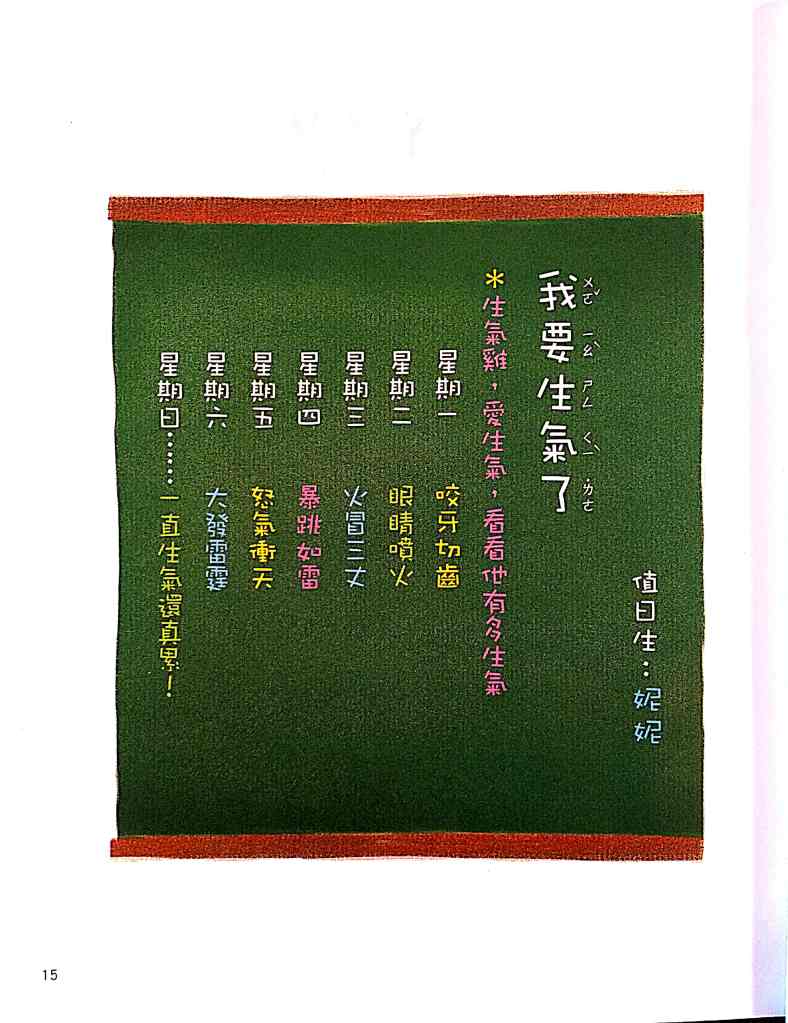 值日生：妮妮
我要生氣了
ㄨㄛˇ ㄧㄠˋ ㄕㄥ ㄑㄧˋ ˙ㄌㄜ
＊生氣雞，愛生氣，看看他有多生氣
星期一 咬牙切齒
星期二 眼睛噴火
星期三 火冒三丈
星期四 暴跳如雷
星期五 怒氣衝天
星期六 大發雷霆
星期日……一直生氣還真累！
15